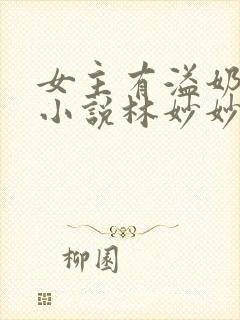 女主有溢奶
小说林妙妙
柳園